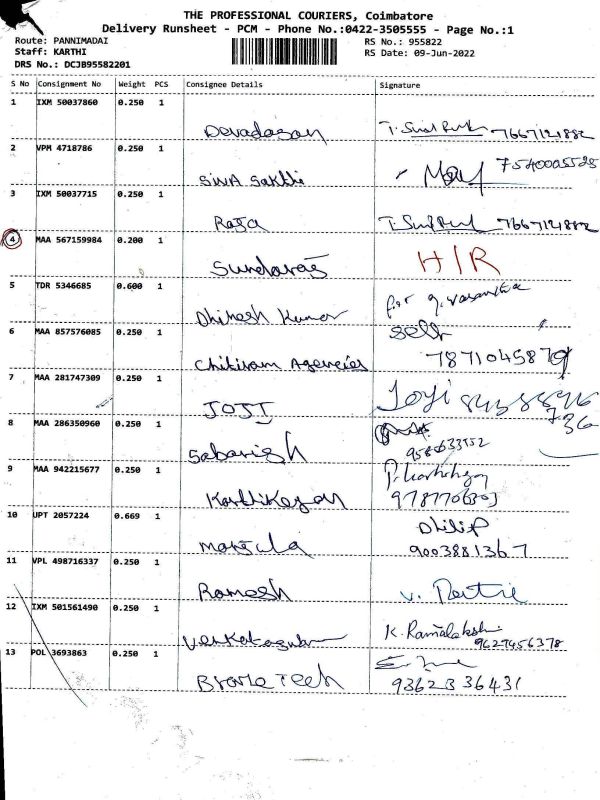 THE PROFESSIONAL COURIERS, Coimbatore
Delivery Runsheet - PCM - Phone No.:0422-3505555 - Page No.:1
Route: PANNIMADAI RS No.: 955822
Staff: KARTHI RS Date: 09-Jun-2022
DRS No.: DCJB95582201
S No Consignment No Weight PCS Consignee Details Signature
1 IXM 50037860 0.250 1
Devadasan 7667121882
2 VPM 4718786 0.250 1
SIVA Sakthi 7540005525
3 IXM 50037715 0.250 1
Raja 7667121882
4 MAA 567159984 0.200 1
Sundaraj H/R
5 TDR 5346685 0.600 1
Dhinesh Kumar for g. vasantha
6 MAA 857576085 0.250 1 Self
Chitiram Agencies 7871045879
7 MAA 281747309 0.250 1
JOJI Joyi
736
8 MAA 286350960 0.250 1
Sabarish
9 MAA 942215677 0.250 1
Karthikeyan
10 UPT 2057224 0.669 1 Dhilip
9003881367
11 VPL 498716337 0.250 1
Ramesh
12 IXM 501561490 0.250 1 K. Ramalakshmi
9627456378
13 POL 3693863 0.250 1
9362336431